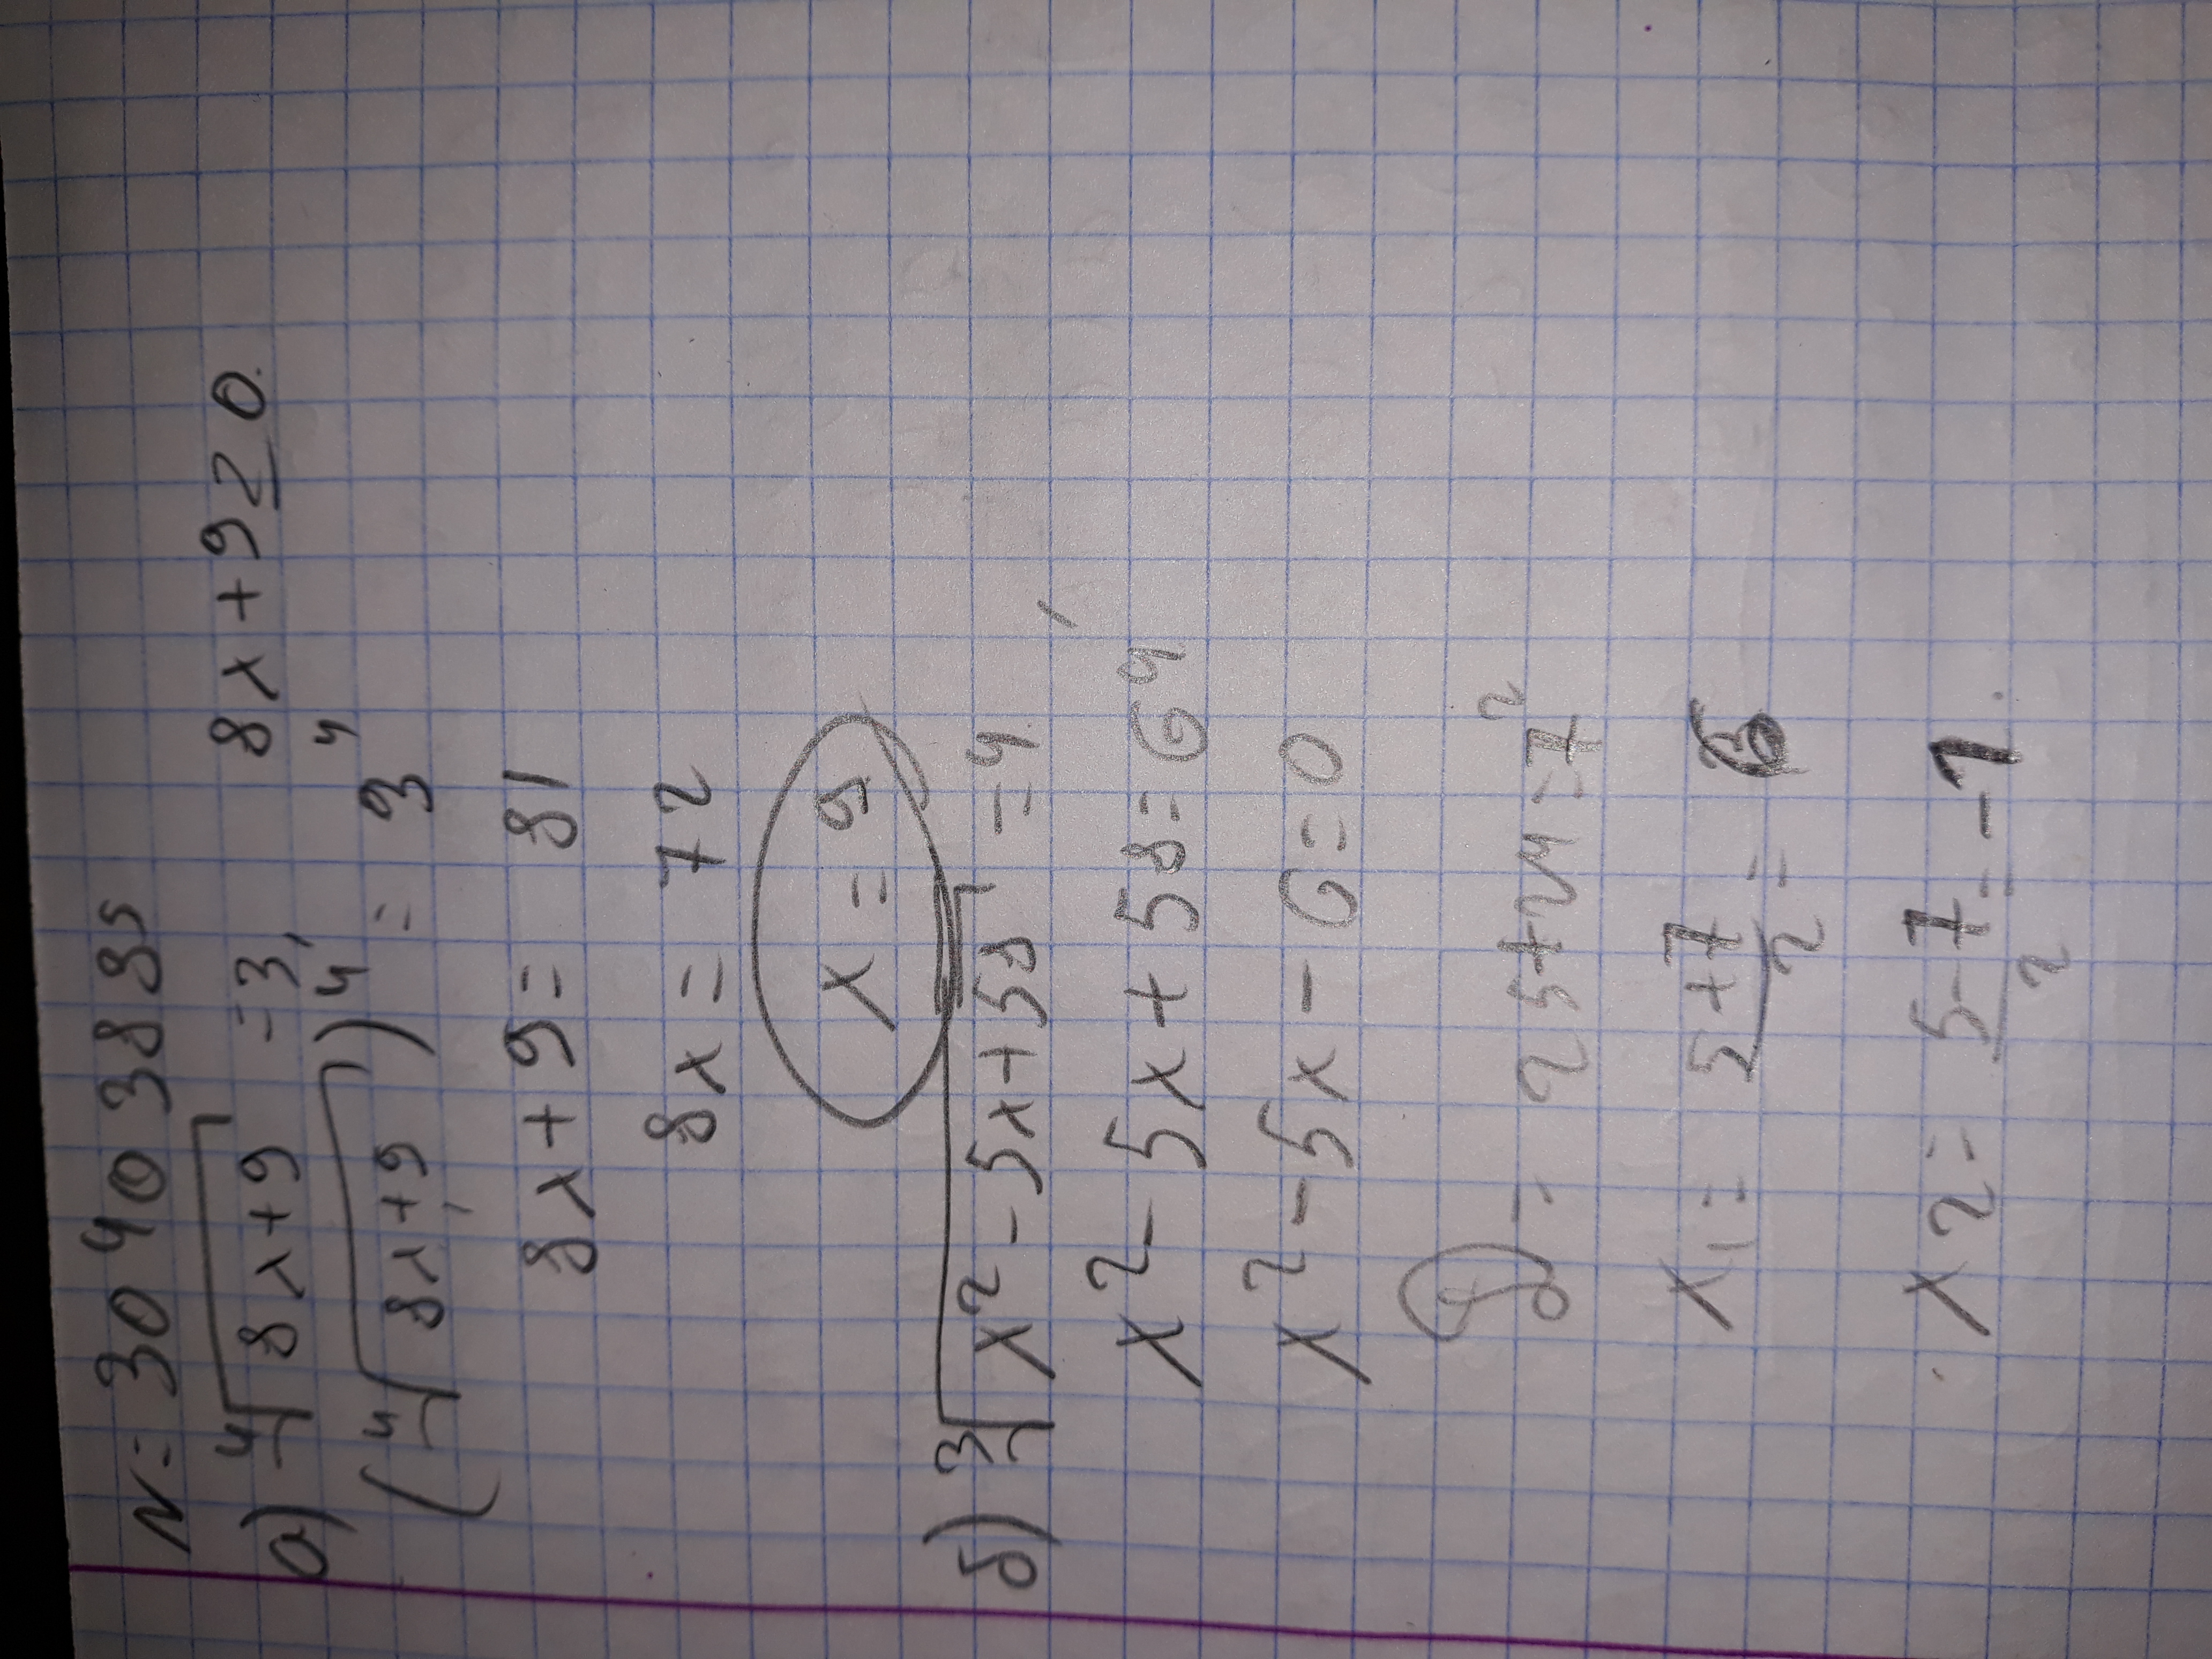 N: 3040388s
а) ⁴√(8x+9) = 3, 8x+9 ≥ 0.
(⁴√(8x+9))⁴ = 3⁴
8x+9 = 81
8x = 72
x = 9
б) ³√(x²-5x+58) = 4
x²-5x+58=64
x²-5x-6=0
D = 25+24=7²
x₁ = (5+7)/2 = 6
x2 = (5-7)/2 = -1.